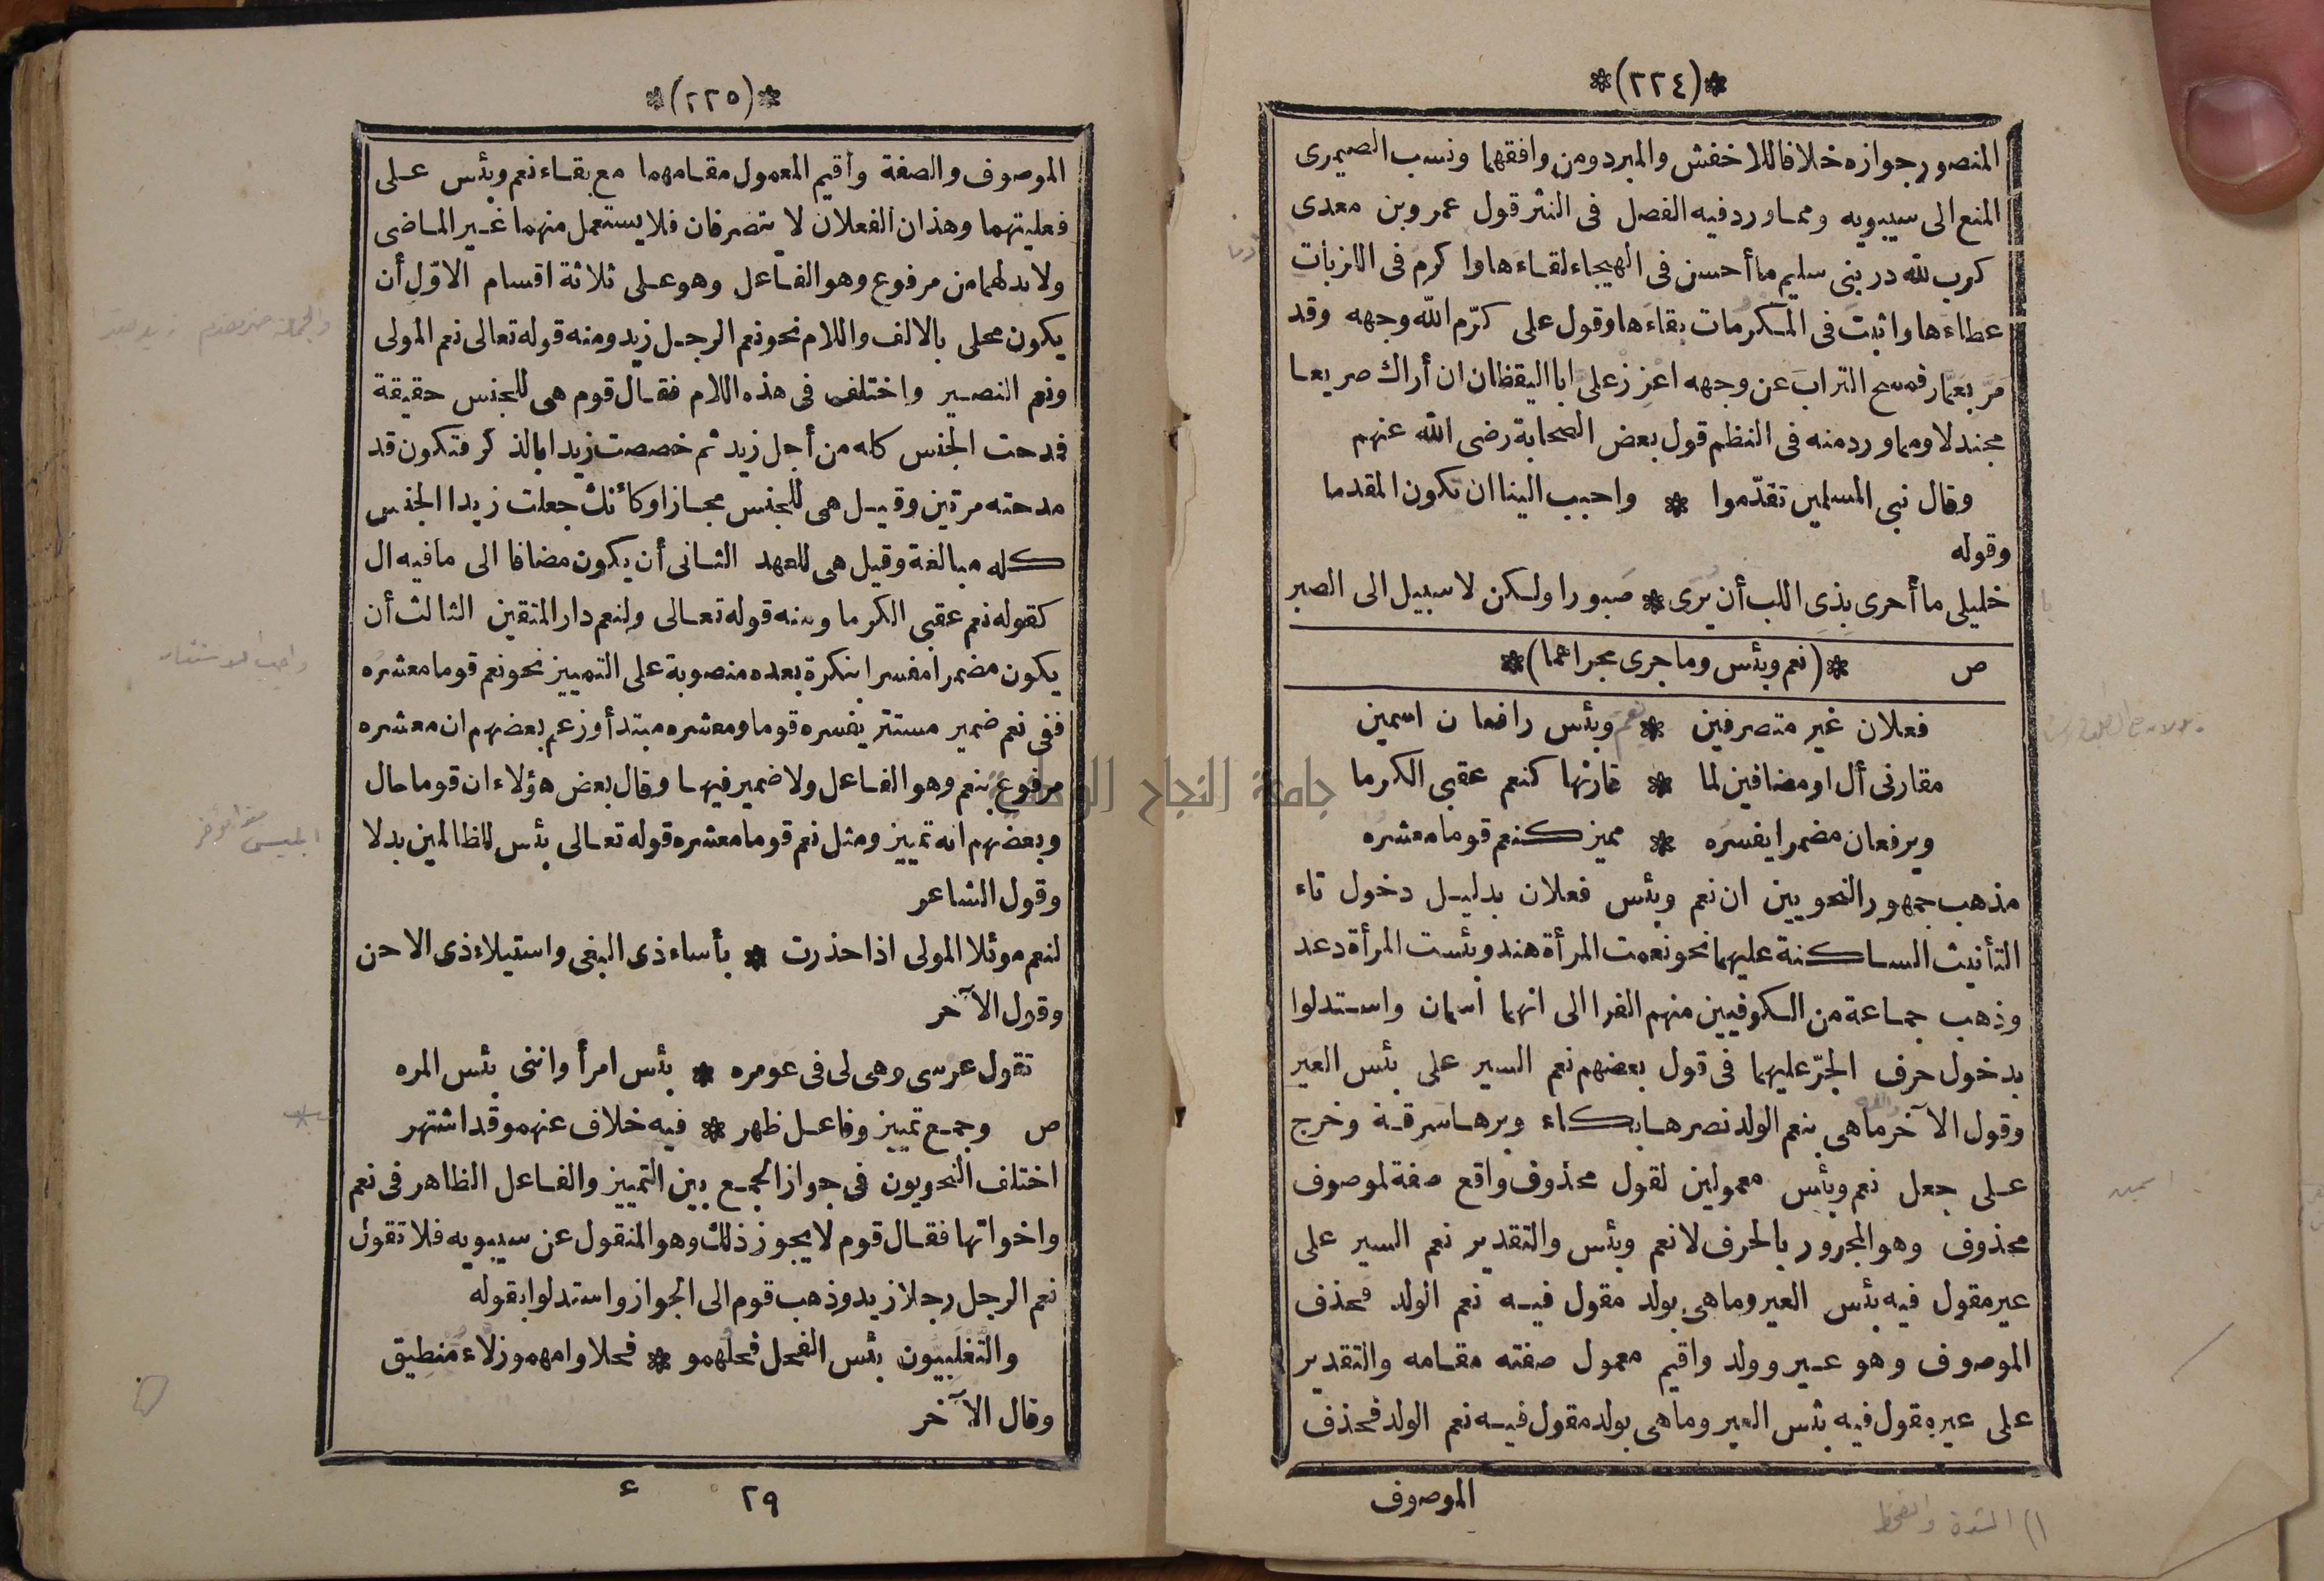 *(٢٢٤)*
المنصور جوازه خلافا للاخفش والمبرد ومن وافقهما ونسب الصيمرى
المنع الى سيبويه ومما ورد فيه الفصل فى النثر قول عمرو بن معدى
كرب لله در بنى سليم ما أحسن فى الهيجاء لقاءها واكرم فى اللزبات
عطاءها واثبت فى المكرمات بقاءها وقول على كرّم الله وجهه وقد
مرّ بعمّار فمسح التراب عن وجهه اعزز علىّ ابا اليقظان ان أراك صريعا
مجندلا ومما ورد منه فى النظم قول بعض الصحابة رضى الله عنهم
وقال نبى المسلمين تقدّموا * واحبب الينا ان تكون المقدما
وقوله
خليلى ما أحرى بذى اللب أن يرى * صبورا ولكن لا سبيل الى الصبر
ص *(نعم وبئس وما جرى مجراهما)*
فعلان غير متصرفين * نعم وبئس رافعان اسمين
مقارنى أل او مضافين لما * قارنها كنعم عقبى الكرما
ويرفعان مضمرا يفسره * مميز كنعم قوما معشره
مذهب جمهور النحويين ان نعم وبئس فعلان بدليل دخول تاء
التأنيث الساكنة عليهما نحو نعمت المرأة هند وبئست المرأة دعد
وذهب جماعة من الكوفيين منهم الفرا الى انهما اسمان واستدلوا
بدخول حرف الجرّ عليهما فى قول بعضهم نعم السير على بئس العير
وقول الآخر ما هى بنعم الولد نصرها بكاء وبرها سرقة وخرج
على جعل نعم وبئس معمولين لقول محذوف واقع صفة لموصوف
محذوف وهو المجرور بالحرف لا نعم وبئس والتقدير نعم السير على
عير مقول فيه بئس العير وما هى بولد مقول فيه نعم الولد فحذف
الموصوف وهو عير وولد واقيم معمول صفته مقامه والتقدير
على عير مقول فيه بئس العير وما هى بولد مقول فيه نعم الولد فحذف
الموصوف
*(٢٢٥)*
الموصوف والصفة وأقيم المعمول مقامهما مع بقاء نعم وبئس على
فعليتهما وهذان الفعلان لا يتصرفان فلا يستعمل منهما غير الماضى
ولا بد لهما من مرفوع وهو الفاعل وهو على ثلاثة اقسام الاوّل أن
يكون محلى بالالف واللام نحو نعم الرجل زيد ومنه قوله تعالى نعم المولى
ونعم النصير واختلف فى هذه اللام فقال قوم هى للجنس حقيقة
فدحت الجنس كله من أجل زيد ثم خصصت زيدا بالذكر فتكون قد
مدحته مرتين وقيل هى للجنس مجازا وكأنك جعلت زيدا الجنس
كله مبالغة وقيل هى للعهد الثانى أن يكون مضافا الى ما فيه ال
كقوله نعم عقبى الكرما ومنه قوله تعالى ولنعم دار المتقين الثالث أن
يكون مضمرا مفسرا بنكرة بعده منصوبة على التمييز نحو نعم قوما معشره
ففى نعم ضمير مستتر يفسره قوما ومعشره مبتدأ وزعم بعضهم ان معشره
مرفوع بنعم وهو الفاعل ولا ضمير فيها وقال بعض هؤلاء ان قوما حال
وبعضهم انه تمييز ومثل نعم قوما معشره قوله تعالى بئس للظالمين بدلا
وقول الشاعر
لنعم موئلا المولى اذا حذرت * بأساء ذى البغى واستيلاء ذى الاحن
وقول الآخر
تقول عرسى وهى لى فى عومره * بئس امرأ واننى بئس المره
ص وجمع تمييز وفاعل ظهر * فيه خلاف عنهمو قد اشتهر
اختلف النحويون فى جواز الجمع بين التمييز والفاعل الظاهر فى نعم
واخواتها فقال قوم لا يجوز ذلك وهو المنقول عن سيبويه فلا تقول
نعم الرجل رجلا زيد وذهب قوم الى الجواز واستدلوا بقوله
والتغلبيون بئس الفحل فحلهمو * فحلا وامهمو زلاء منطيق
وقال الآخر
٢٩ ء
جامعة النجاح الوطنية